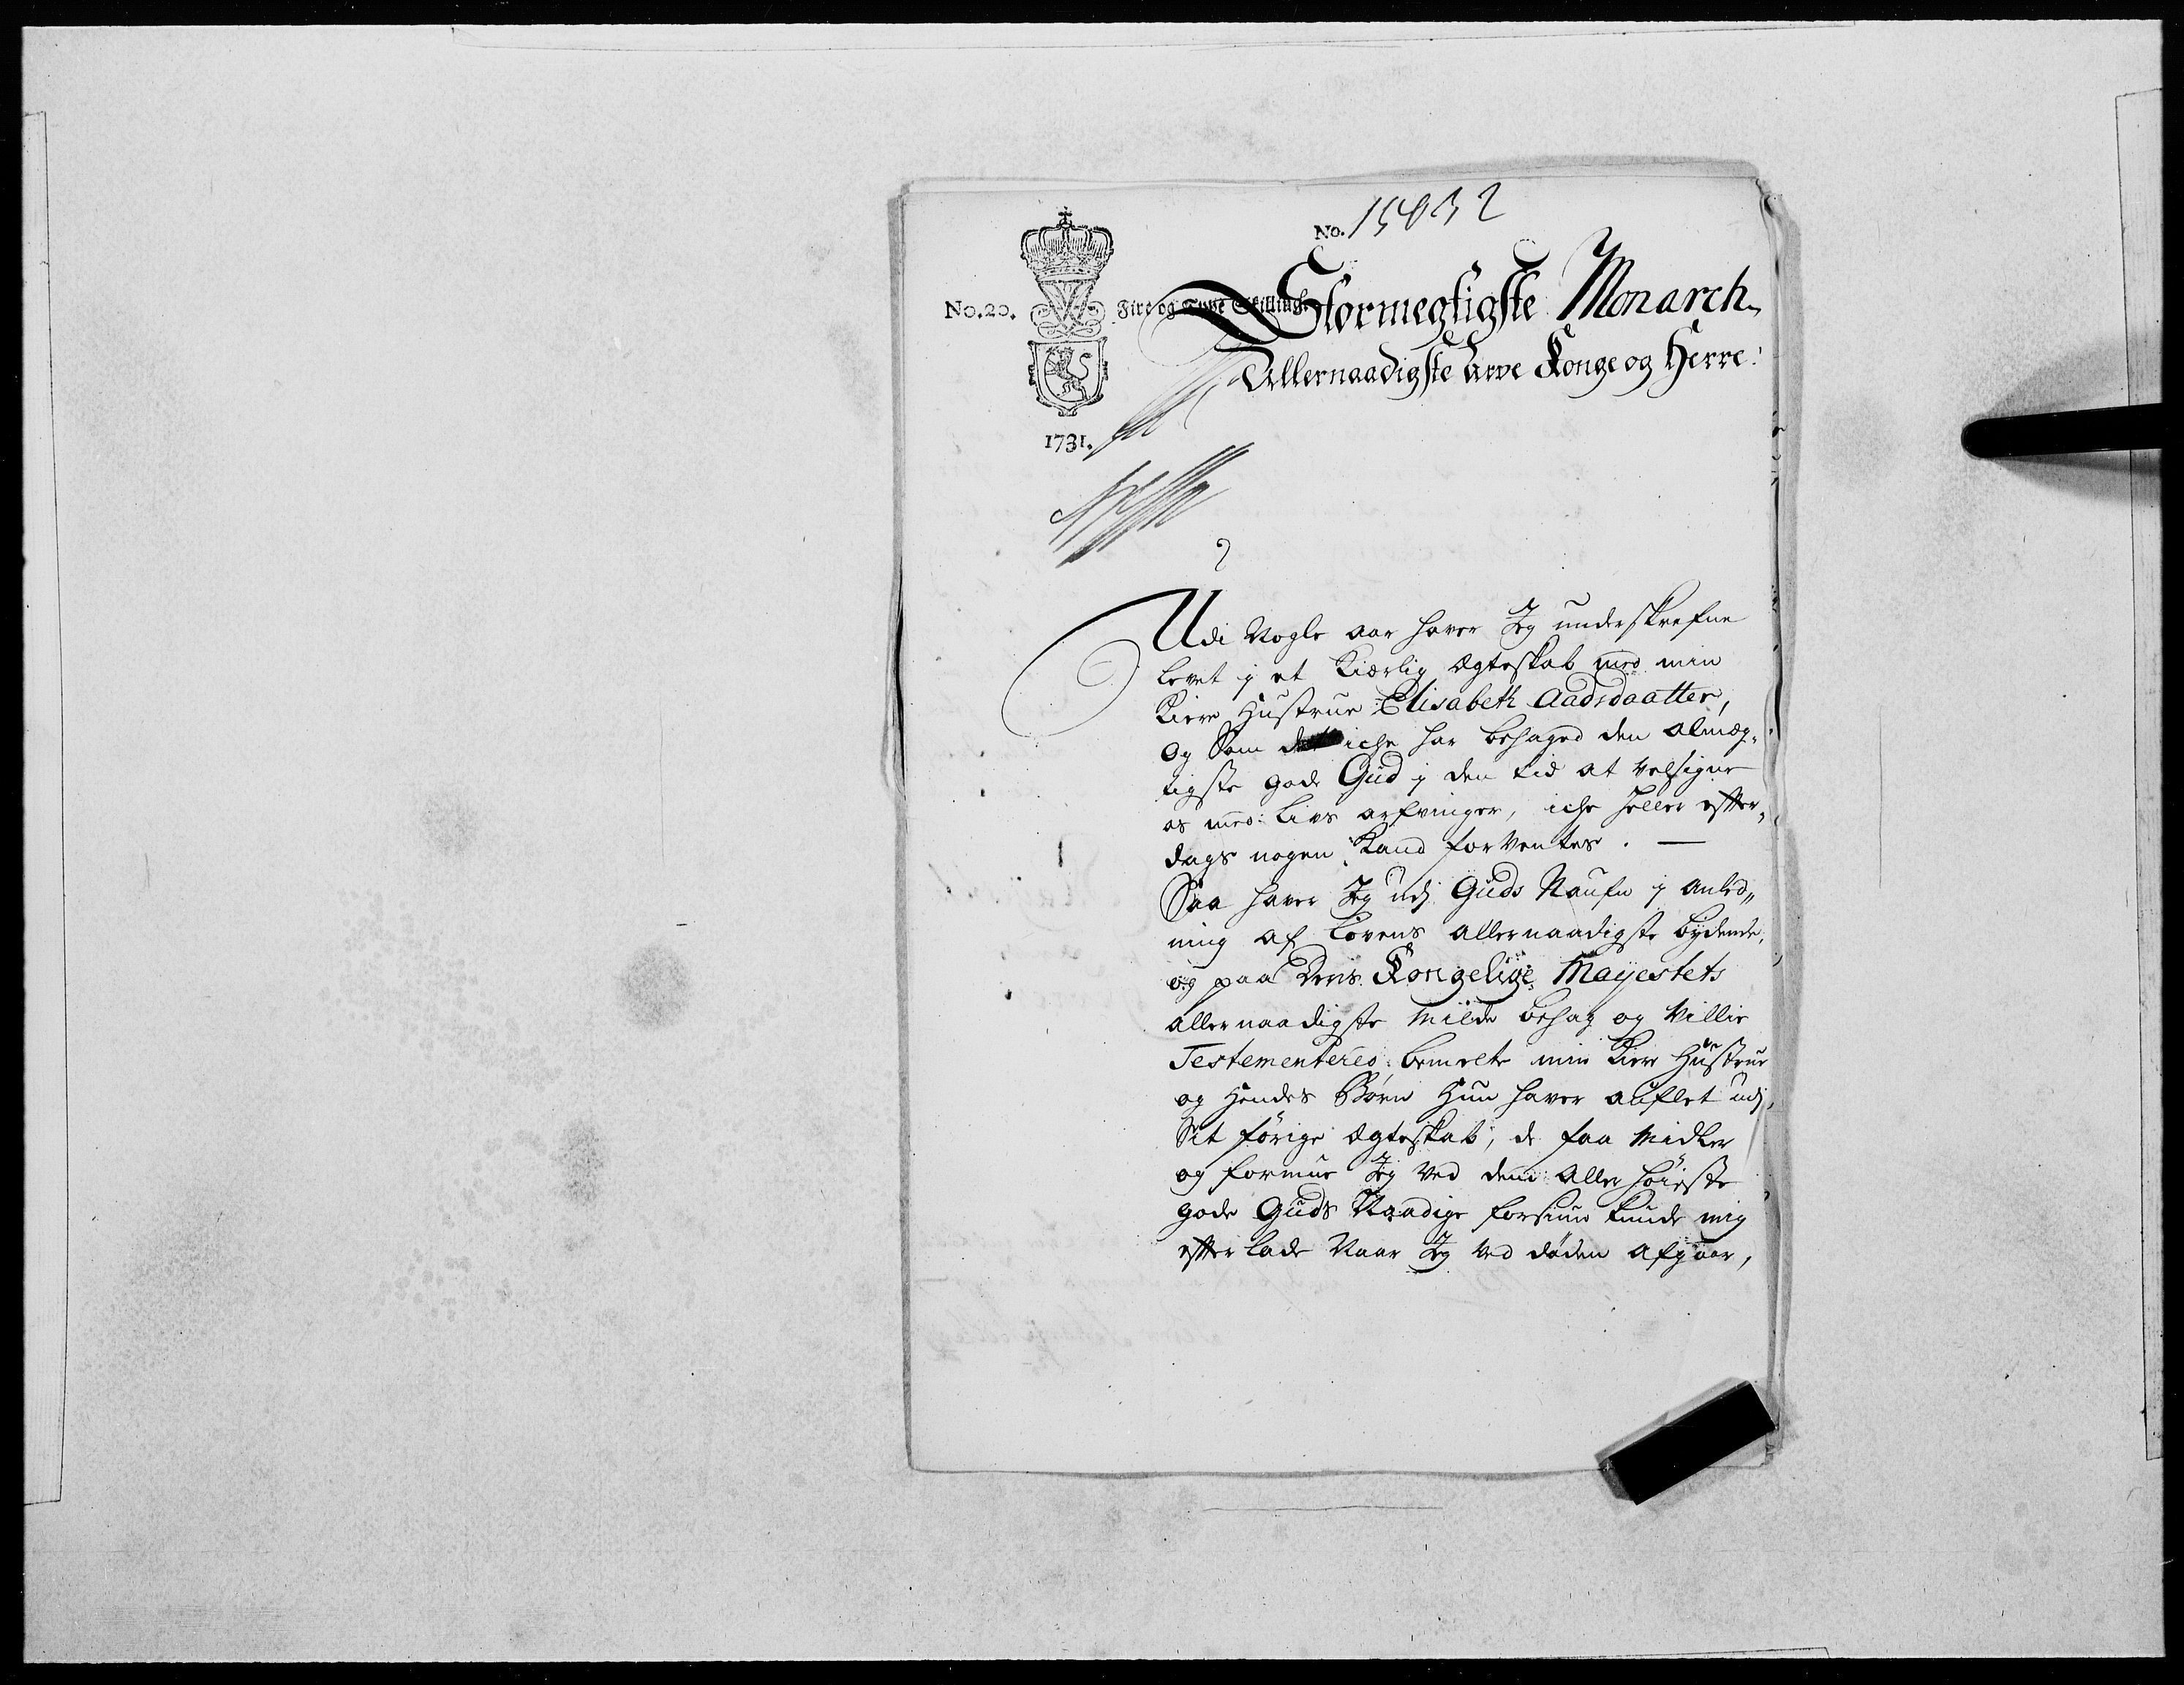 No. 15032
No. 20.
Fire og Tyve Skilling.
Stormegtigste Monarch
Allernaadigste Arve Konge og Herre!
1731.
Udi Nogle aar haver Jeg underskrefne
levet i et Kiærlig Ægteskab med min
Kiere Hustrue Elisabeth Aadsdaatter,
og Som det iche har behaged den almæg,,
tigste gode Gud i den tid at velsigne
os med Livs arfvinger, iche heller effter,,
dags nogen Kand forventes. —
Saa haver Jeg udj Guds Naufn i anled,,
ning af Lovens allernaadigste bydende,
og paa Deris Kongelige Mayestets
allernaadigste milde behag og Villie
Testementered bemelte min Kiere Hustrue
og Hendes Børn Hun haver auflet udj,
Sitførige Ægteskab, de faa Midler
og formue Jeg ved den Aller høieste
gode Guds Naadige forsiun kunde mig
effterlade Naar Jeg ved døden afgaar,